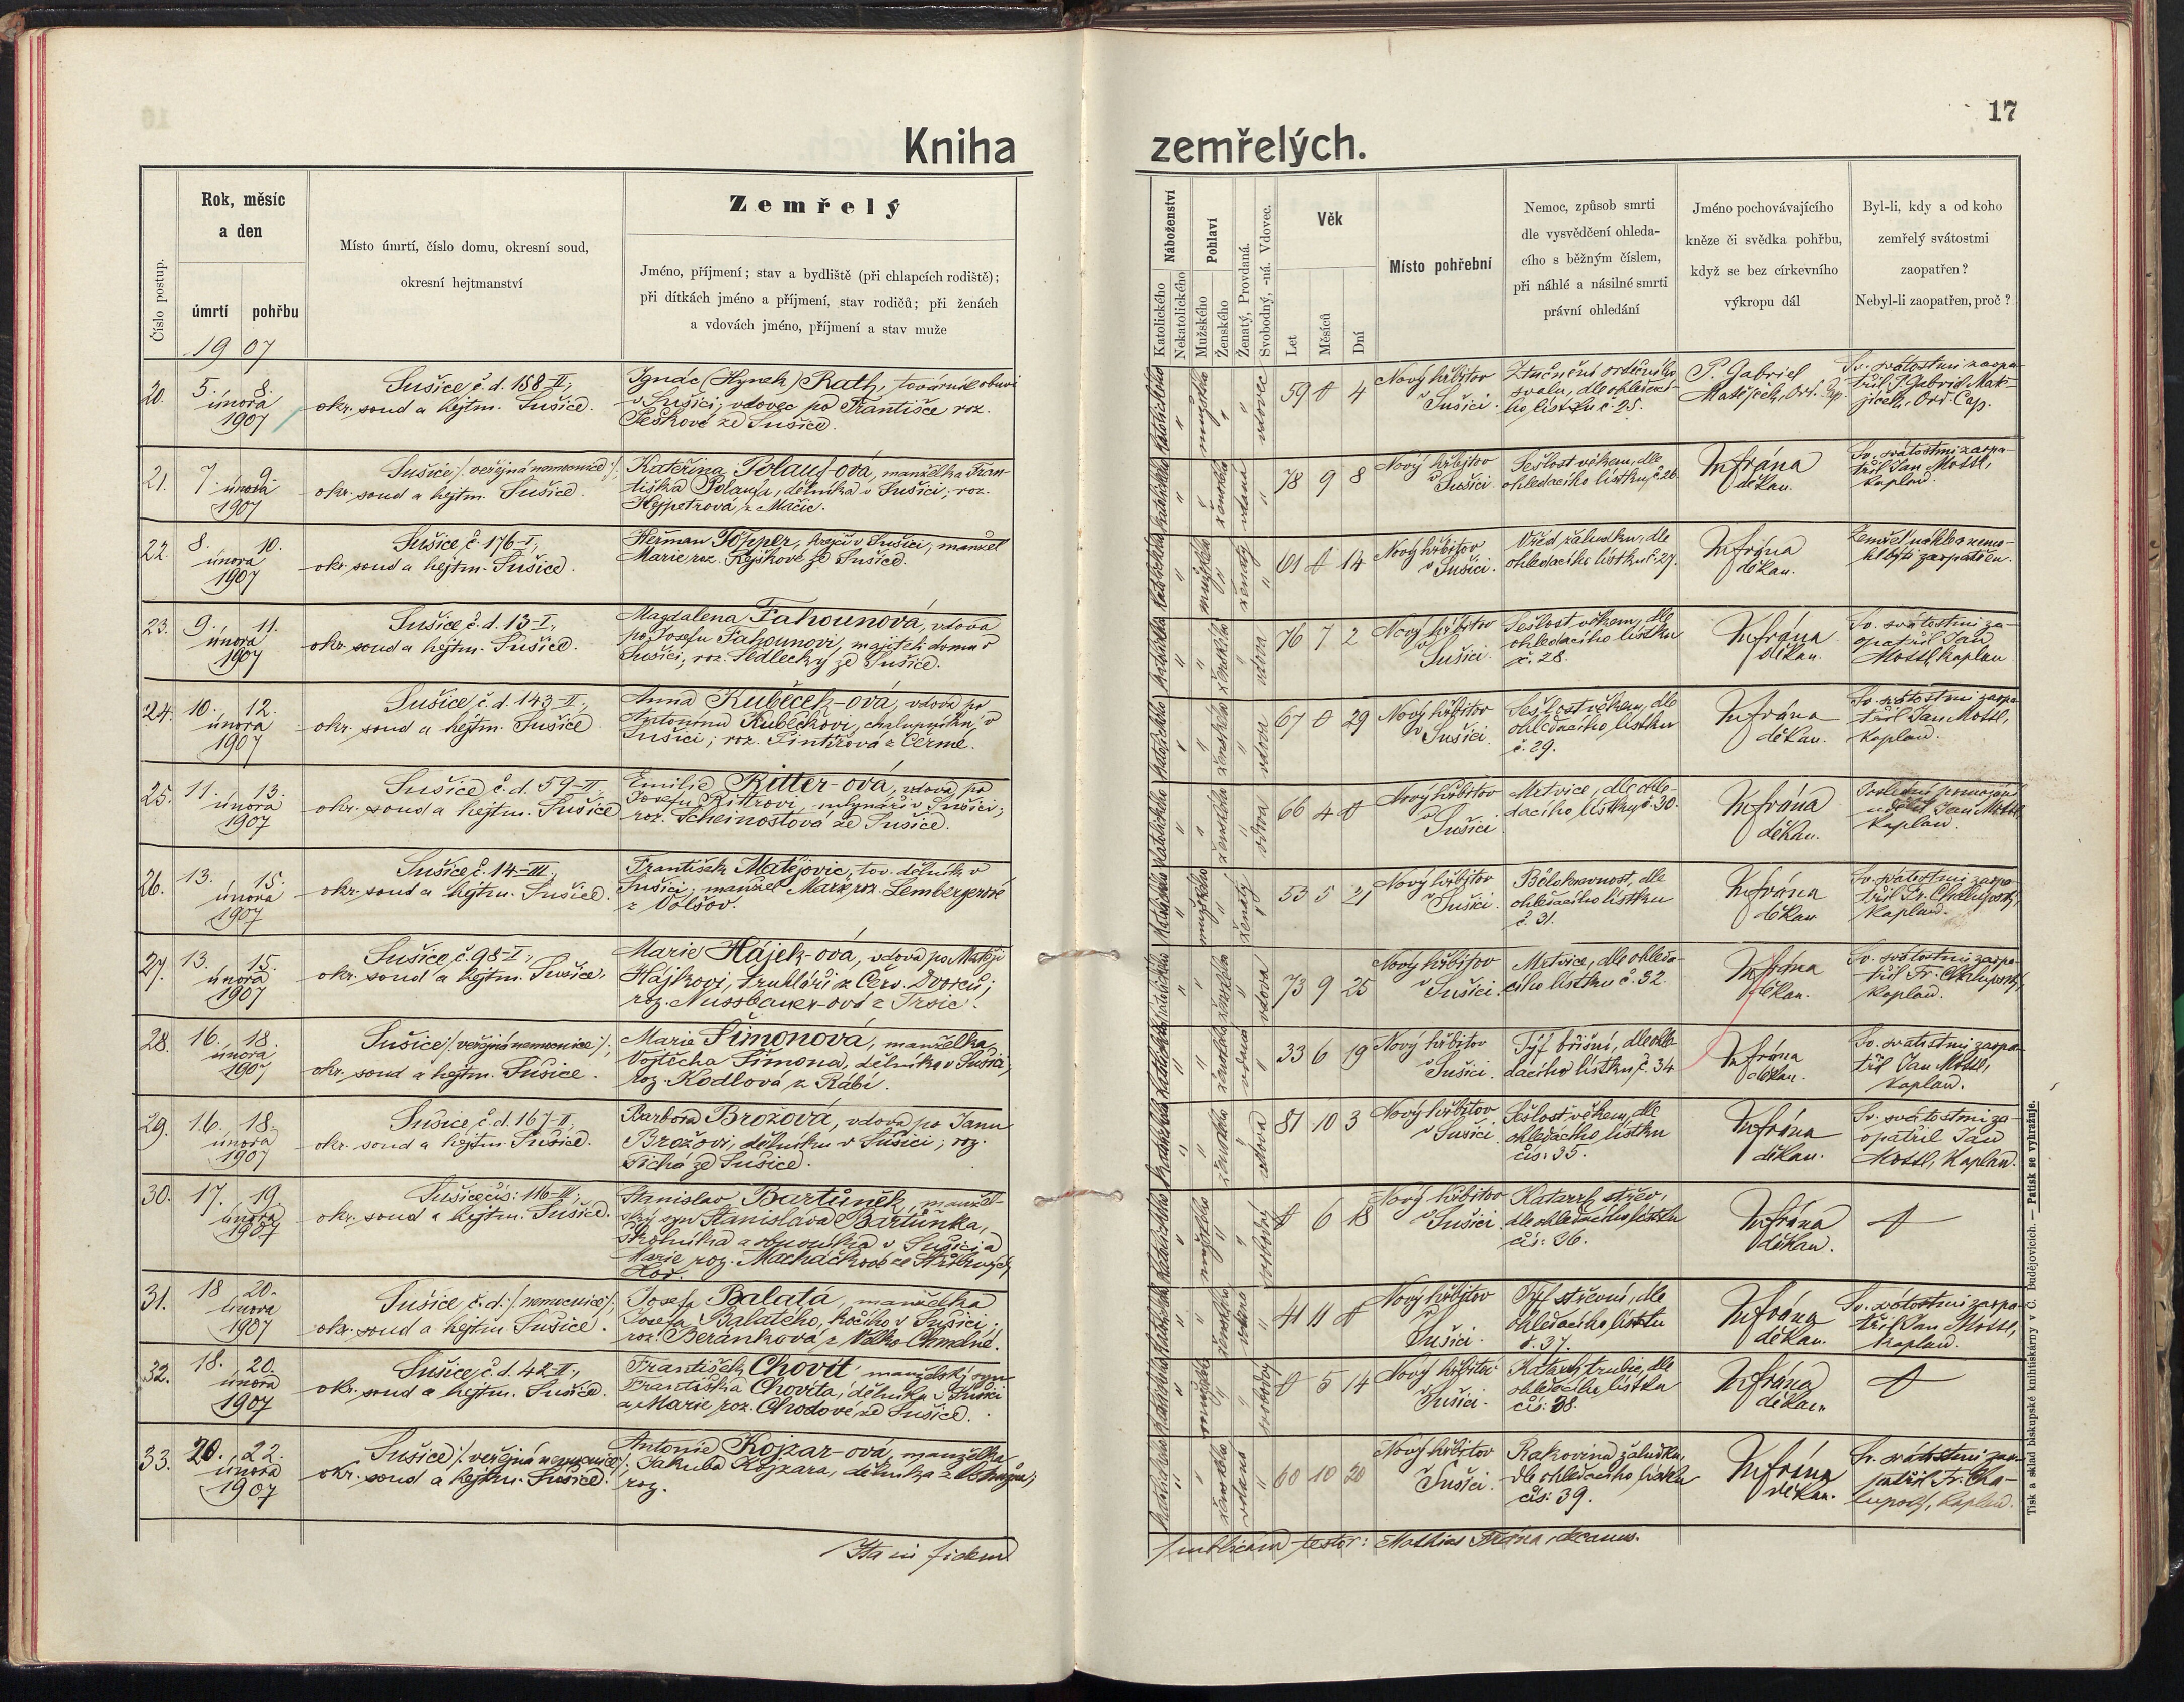 17
Kniha zemřelých.
Číslo postup.
Rok, měsíc
a den
úmrtí
pohřbu
Místo úmrtí, číslo domu, okresní soud,
okresní hejtmanství
Zemřelý
Jméno, příjmení; stav a bydliště (při chlapcích rodiště);
při dítkách jméno a příjmení, stav rodičů; při ženách
a vdovách jméno, příjmení a stav muže
Náboženství
Katolického
Nekatolického
Pohlaví
Mužského
Ženského
Ženatý, Provdaná.
Svobodný, -ná. Vdovec.
Věk
Let
Měsíců
Dní
Místo pohřební
Nemoc, způsob smrti
dle vysvědčení ohleda-
cího s běžným číslem,
při náhlé a násilné smrti
právní ohledání
Jméno pochovávajícího
kněze či svědka pohřbu,
když se bez církevního
výkropu dál
Byl-li, kdy a od koho
zemřelý svátostmi
zaopatřen?
Nebyl-li zaopatřen, proč?
1907
20. 5. 8.
února
1907
Sušice, č. d. 158-II;
okr. soud a hejtm. Sušice.
Ignác (Hynek) Rath, továrník obuvi
v Sušici; vdovec po Františce roz.
Peškové ze Sušice.
vdovec
59 0 4
Nový hřbitov
v Sušici.
svalu, dle ohledací-
ho lístku č. 25.
P. Gabriel
Matějček, Ord. Cap.
Sv. svátostmi zaopa-
třil P. Gabriel Mat-
jíček, Ord. Cap.
21. 7. 9.
února
1907
Sušice /: veřejná nemocnice :/;
okr. soud a hejtm. Sušice.
Kateřina Polauf-ová, manželka Fran-
tiška Polaufa, dělníka v Sušici; roz.
Hejpetrová z Mačic.
vdaná
78 9 8
Nový hřbitov
v Sušici.
Sešlost věkem, dle
ohledacího lístku, č. 26.
M Frána
děkan.
Sv. svátostmi zaopa-
třil Jan Mottl,
kaplan.
22. 8. 10.
února
1907
Sušice č. 176-I;
okr. soud a hejtm. Sušice.
Heřman Töpper, krejčí v Sušici, manžel
Marie roz. Rejškové ze Sušice.
ženatý
61 0 14
Nový hřbitov
v Sušici.
Vřed žaludku, dle
ohledacího lístku č. 27.
M Frána
děkan.
Zemřel náhle a nemo-
hl býti zaopatřen.
23. 9. 11.
února
1907
Sušice č. d. 13-I;
okr. soud a hejtm. Sušice.
Magdalena Fahounová, vdova
po Josefu Fahounovi, majiteli domu v
Sušici; roz. Sedlecký ze Sušice.
vdova
76 7 2
Nový hřbitov
v Sušici.
Sešlost věkem, dle
ohledacího lístku
č. 28.
M Frána
děkan.
Sv. svátostmi za-
opatřil Jan
Mottl, kaplan
24. 10. 12.
února
1907
Sušice, č. d. 143-II;
okr. soud a hejtm. Sušice.
Anna Kubeček-ová, vdova po
Antonínu Kubečkovi, chalupníku v
Sušici; roz.
vdova
67 0 29
Nový hřbitov
v Sušici.
Sešlost věkem, dle
ohledacího lístku
č. 29.
M Frána
děkan.
Sv. svátostmi zaopa-
třil Jan Mottl,
kaplan.
25. 11. 13.
února
1907
Sušice č. d. 59-II;
okr. soud a hejtm. Sušice
Emilie Ritter-ová, vdova po
Josefu Rittrovi, mlynáři v Sušici;
roz. Scheinostová ze Sušice.
vdova
66 4 0
Nový hřbitov
v Sušici
Mrtvice, dle ohle-
dacího lístku č. 30.
M Frána
děkan.
Poslední pomazání
Jan Mottl,
kaplan.
26. 13. 15.
února
1907
Sušice č. 14-III;
okr. soud a hejtm. Sušice.
František Matějovic, tov. dělník v
Sušici; manžel Marie roz. Lembergerové
z Volšov.
ženatý
53 5 21
Nový hřbitov
v Sušici.
Bělokrevnost, dle
ohledacího lístku
č. 31.
M Frána
děkan
Sv. svátostmi zaopa-
třil Fr. Chalupský,
kaplan.
27. 13. 15.
února
1907
Sušice, č. 98-I;
okr. soud a hejtm. Sušice.
Marie Hájek-ová, vdova po Matěji
Hájkovi, truhláři z Červ. Dvorců;
roz. Nussbauer-ová z
vdova
73 9 25
Nový hřbitov
v Sušici.
Mrtvice, dle ohleda-
cího lístku č. 32.
M Frána
děkan.
Sv. svátostmi zaopa-
třil Fr. Chalupský,
kaplan.
28. 16. 18.
února
1907
Sušice /: veřejná nemocnice :/;
okr. soud a hejtm. Sušice.
Marie Šimonová, manželka
Vojtěcha Šimona, dělníka v Sušici;
roz. Kodlová z Rábí.
vdaná
33 6 19
Nový hřbitov
v Sušici.
Tyf břišní, dle ohle-
dacího lístku, č. 34
M Frána
děkan.
Sv. svátostmi zaopa-
třil Jan Mottl,
kaplan.
29. 16. 18.
února
1907
Sušice, č. d. 167-II;
okr. soud a hejtm. Sušice.
Barbora Brožová, vdova po Janu
Brožovi, dělníku v Sušici; roz.
Tichá ze Sušice.
vdova
81 10 3
Nový hřbitov
v Sušici
Sešlost věkem, dle
ohledacího lístku
čís: 35.
M Frána
děkan.
Sv. svátostmi za-
opatřil Jan
Mottl, kaplan.
30. 17. 19.
února
1907
Sušice čís: 116-III;
okr. soud a hejtm. Sušice.
Stanislav Bartůněk, manžel-
ský syn Stanislava Bartůňka,
a obuvníka v Sušici a
Marie roz. Macháčkové ze Stříbrných
Hor.
svobodný
0 6 18
Nový hřbitov
v Sušici.
Katarrh střev,
dle ohledacího lístku
čís: 36.
M Frána
děkan.
31. 18 20.
února
1907
Sušice, č. d: /: nemocnice :/;
okr. soud a hejtm. Sušice.
Josefa Balatá, manželka
Josefa Balatého, kočího v Sušici;
roz. Beránková z Velko Chmelné.
vdaná
41 11 0
Nový hřbitov
v
Sušici.
Tyf střevní, dle
ohledacího lístku
č. 37.
M Frána
děkan.
Sv. svátostmi zaopa-
třil Jan Mottl,
kaplan.
32. 18. 20.
února
1907
Sušice, č. d. 42-II;
okr. soud a hejtm. Sušice.
František Chovit, manželský syn
Františka Chovita, dělníka v Sušici
a Marie roz. Chodové ze Sušice.
svobodný
0 5 14
Nový hřbitov
v Sušici.
Katarrh trubic, dle
ohledacího lístku
čís: 38.
M Frána
děkan
33. 20. 22.
února
1907
Sušice /: veřejná nemocnice :/;
okr. soud a hejtm. Sušice.
Antonie Kojzar-ová, manželka
Jakuba Kojzara, dělníka z
roz.
vdaná
60 10 20
Nový hřbitov
v Sušici.
Rakovina žaludku,
dle ohledacího lístku
čís: 39.
M Frána
děkan.
Sv. svátostmi zao-
patřil Fr. Cha-
lupský, kaplan.
Ita in fidem
publicam testor: Mathias Frána, decanus.
Tisk a sklad biskupské knihtiskárny v Č. Budějovicích. — Patisk se vyhražuje.